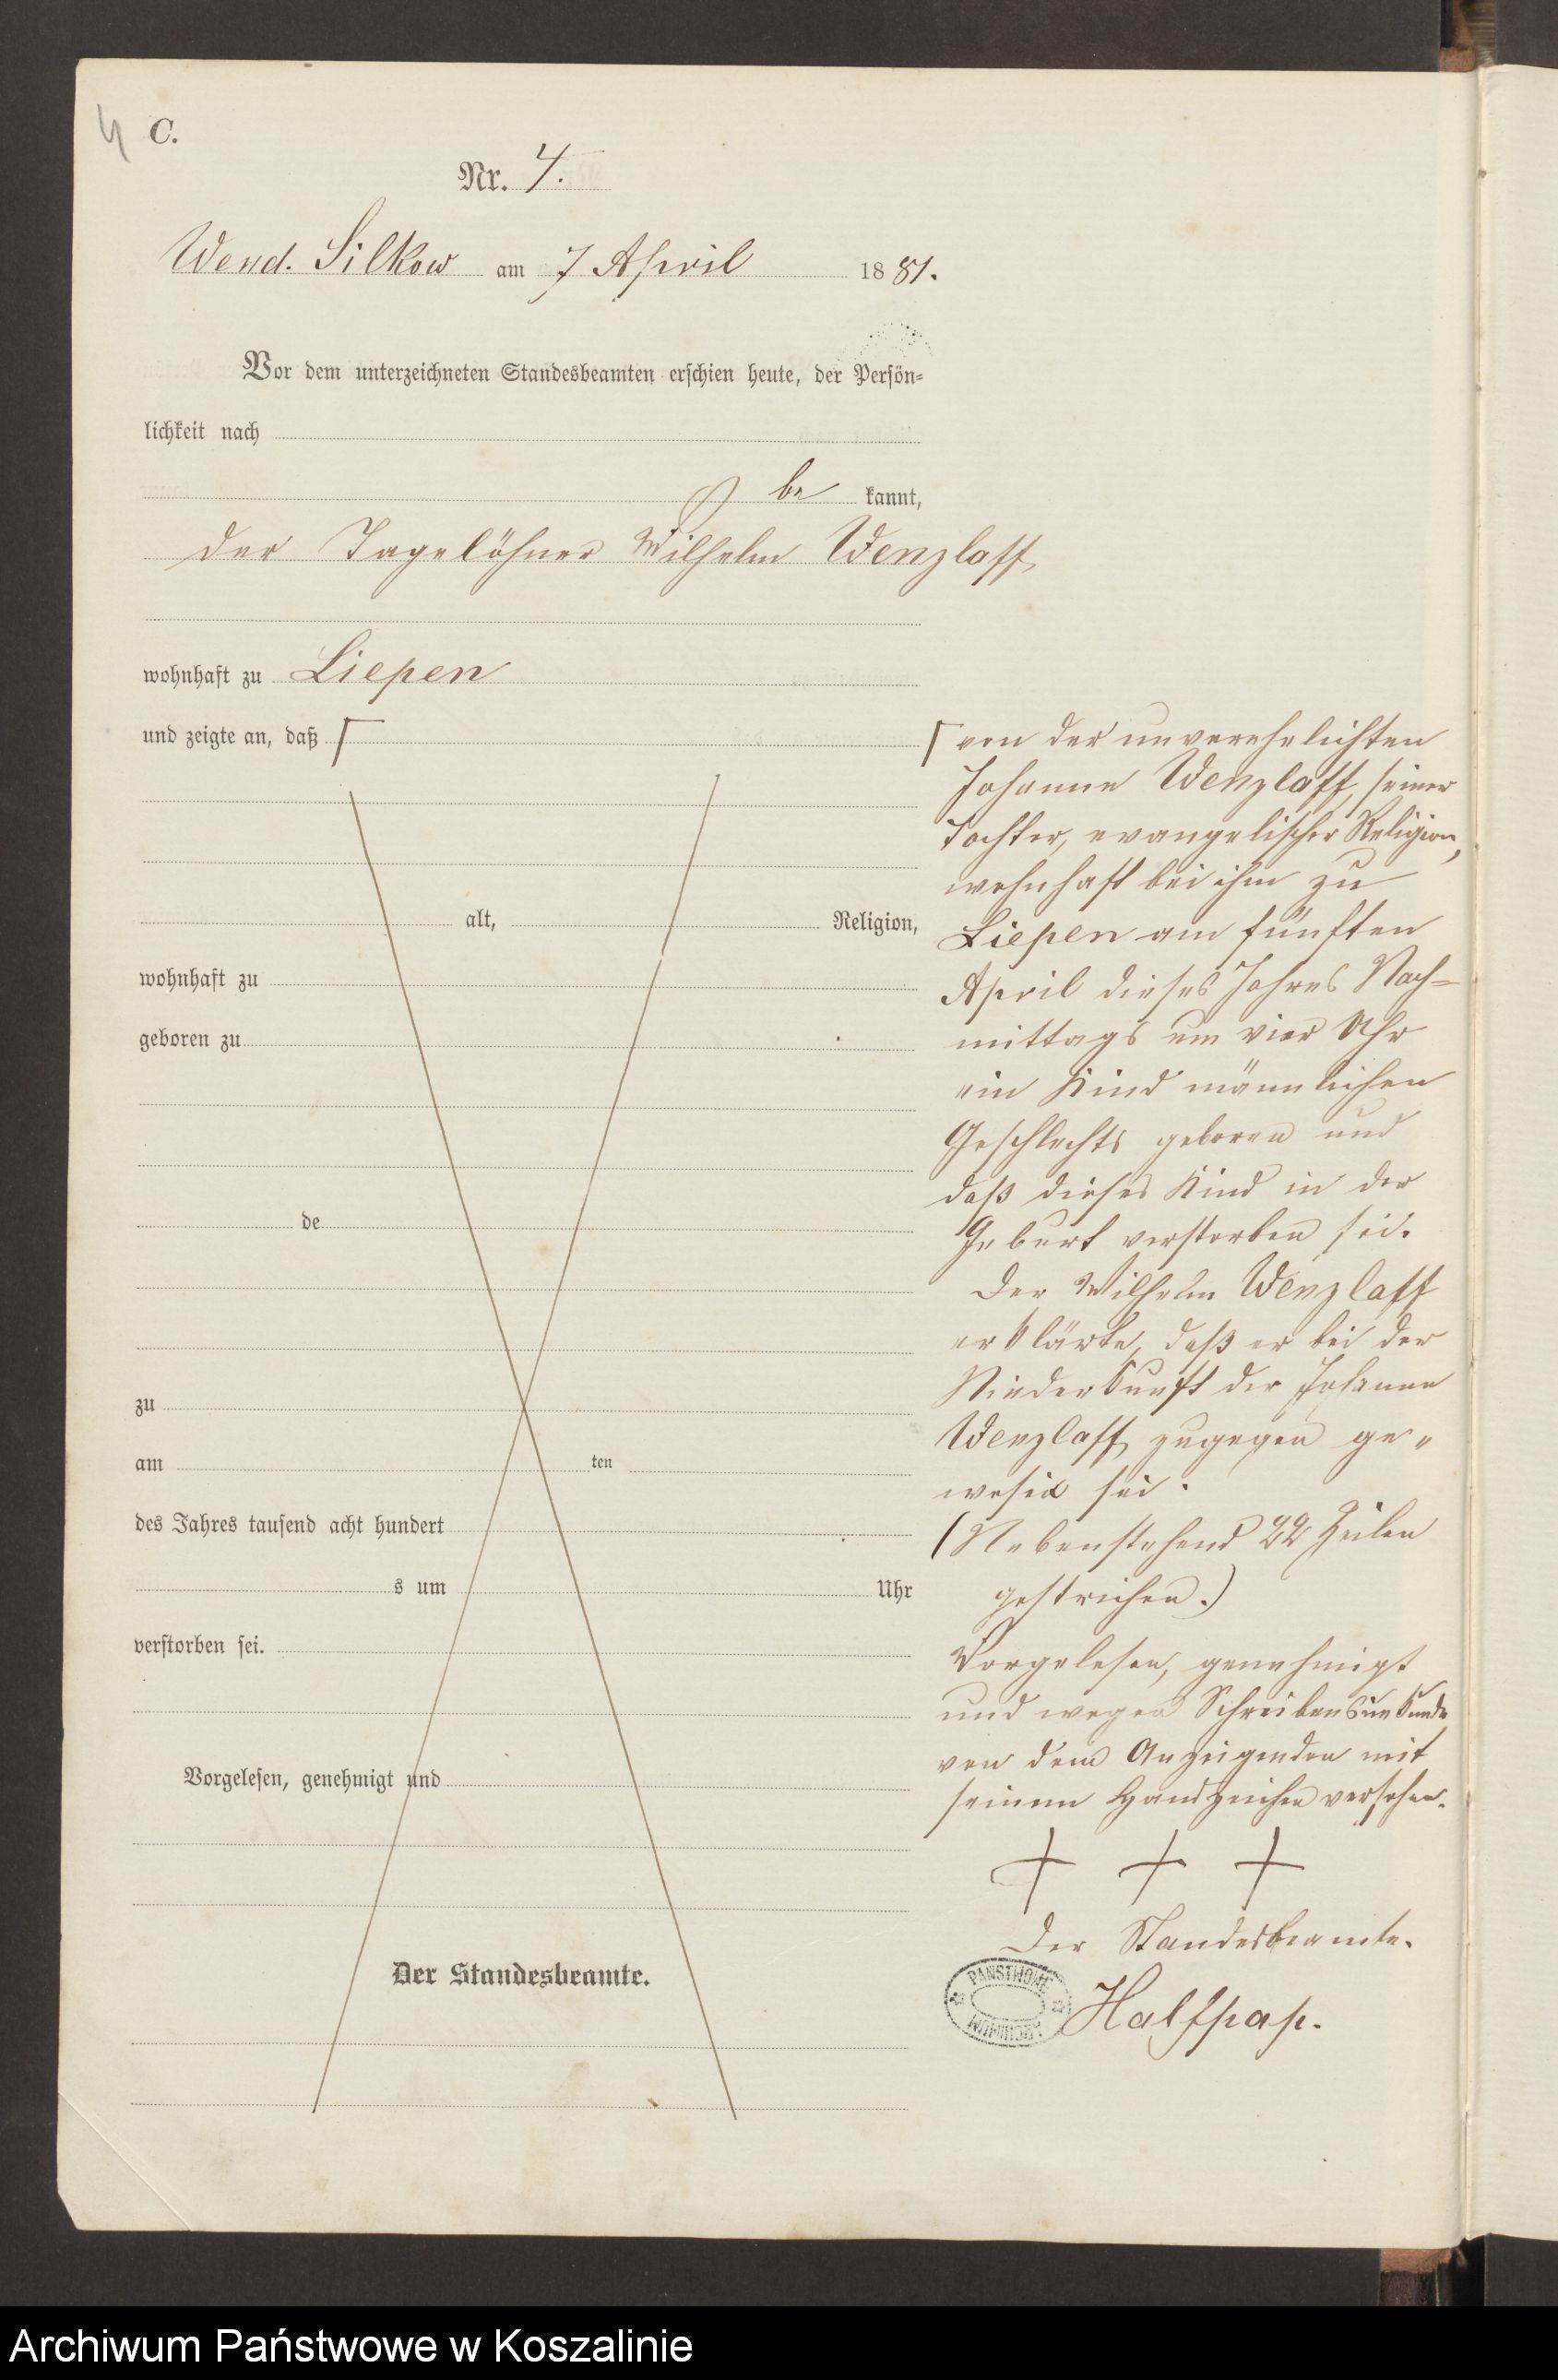 4 C.
Nr. 4.
Wend. Silkow am 7 April 1881.
Vor dem unterzeichneten Standesbeamten erschien heute, der Persön-
lichkeit nach
be kannt,
der Tagelöhner Wilhelm Wenzlaff
wohnhaft zu Liepen
und zeigte an, daß
alt, Religion,
wohnhaft zu
geboren zu
de
zu
am ten
des Jahres tausend acht hundert
s um Uhr
verstorben sei.
Vorgelesen, genehmigt und
Der Standesbeamte.
von der unverehelichten
Johanne Wenzlaff, seiner
Tochter, evangelischer Religion,
wohnhaft bei ihm zu
Liepen am fünften
April dieses Jahres Nach-
mittags um vier Uhr
ein Kind männlichen
Geschlechts geboren und
daß dieses Kind in der
Geburt verstorben sei.
Der Wilhelm Wenzlaff
erklärte, daß er bei der
Niederkunft der Johanne
Wenzlaff zugegen ge-
wesen sei.
(Nebenstehend 22 Zeilen
gestrichen.)
Vorgelesen, genehmigt
und wegen Schreibensunkunde
von dem Anzeigenden mit
seinem Handzeichen versehen.
+ + +
Der Standesbeamte.
Halfpap.
Archiwum Państwowe w Koszalinie